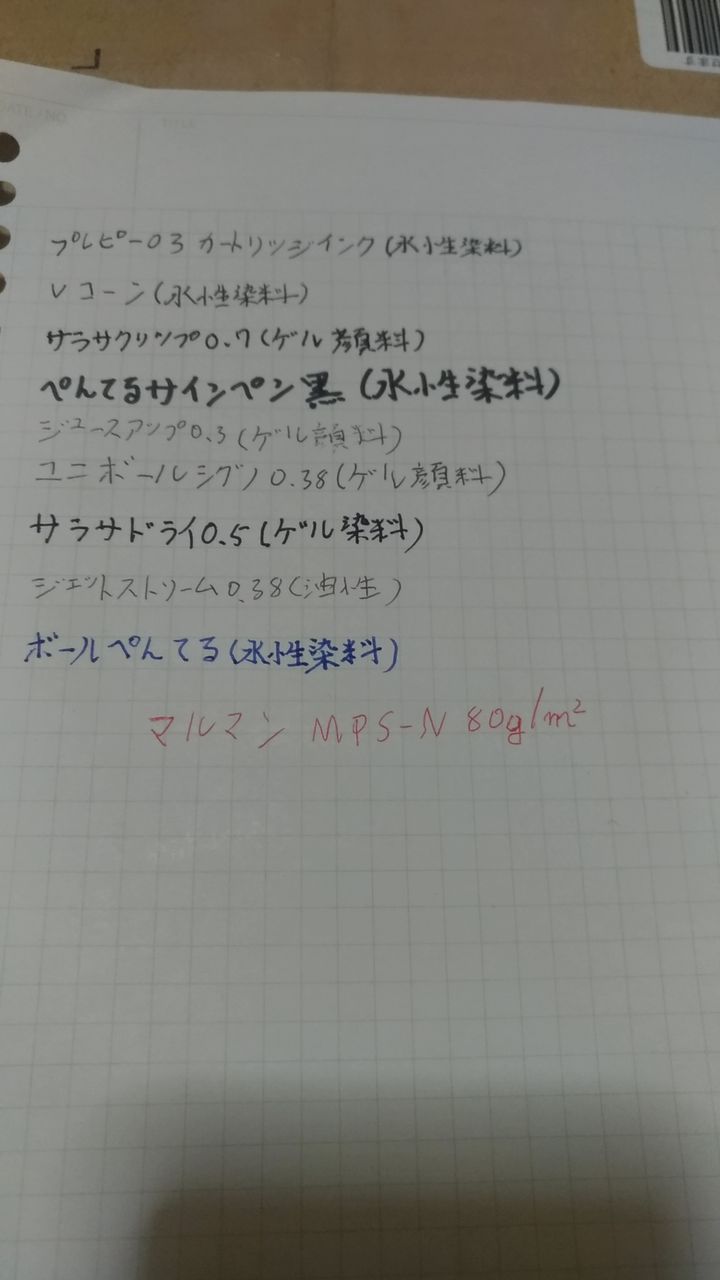 プレピー03 カートリッジインク(水性染料)
Vコーン(水性染料)
サラサクリップ0.7(ゲル顔料)
ぺんてるサインペン黒(水性染料)
ジュースアップ0.3(ゲル顔料)
ユニボールシグノ0.38(ゲル顔料)
サラサドライ0.5(ゲル染料)
ジェットストリーム0.38(油性)
ボールぺんてる(水性染料)
マルマン MPS-N 80g/m²